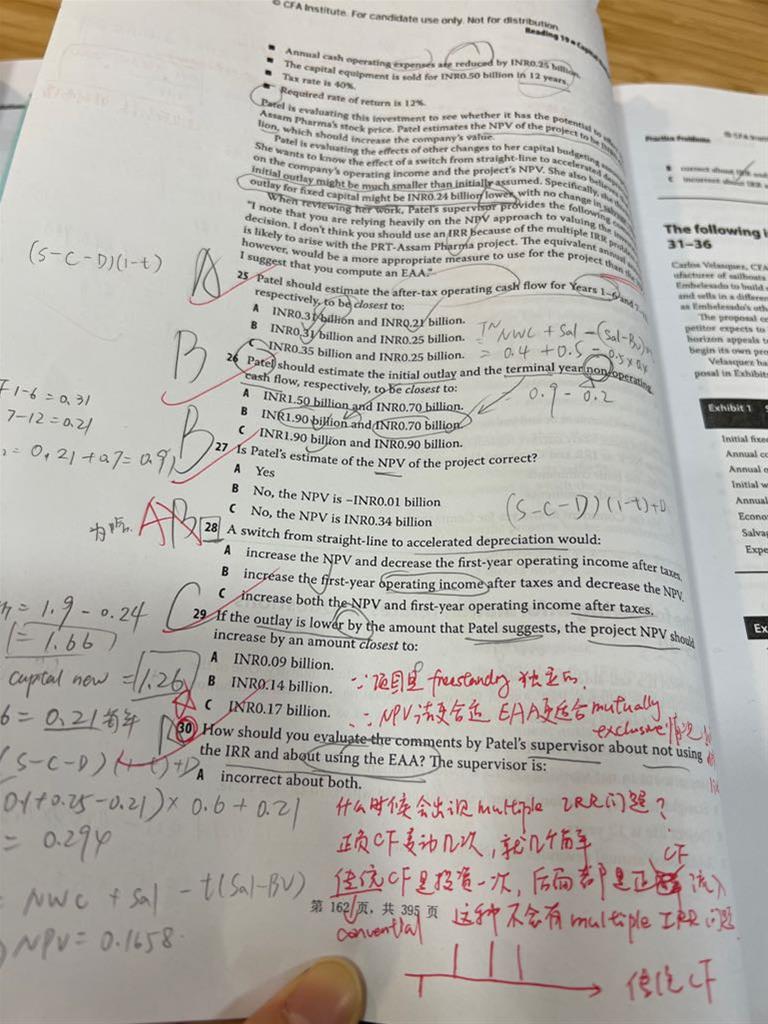 © CFA Institute. For candidate use only. Not for distribution.
Reading 19 ■ Capital
■ Annual cash operating expenses are reduced by INR0.25 billion.
■ The capital equipment is sold for INR0.50 billion in 12 years.
■ Tax rate is 40%.
■ Required rate of return is 12%.
Patel is evaluating this investment to see whether it has the potential to
Assam Pharma's stock price. Patel estimates the NPV of the project to be
lion, which should increase the company's value.
Patel is evaluating the effects of other changes to her capital budgeting
She wants to know the effect of a switch from straight-line to accelerated
on the company's operating income and the project's NPV. She also believes
initial outlay might be much smaller than initially assumed. Specifically, she
outlay for fixed capital might be INR0.24 billion lower, with no change in
When reviewing her work, Patel's supervisor provides the following
"I note that you are relying heavily on the NPV approach to valuing the
decision. I don't think you should use an IRR because of the multiple IRR
is likely to arise with the PRT-Assam Pharma project. The equivalent annual
however, would be a more appropriate measure to use for the project than the
I suggest that you compute an EAA."
(S-C-D)(1-t)
A
25 Patel should estimate the after-tax operating cash flow for Years 1–6 and
respectively, to be closest to:
A INR0.31 billion and INR0.21 billion.
B INR0.31 billion and INR0.25 billion.
C INR0.35 billion and INR0.25 billion.
TN NWC + Sal - (Sal-BV)
= 0.4 + 0.5 - 0.5×0.4
0.9 - 0.2
B
26 Patel should estimate the initial outlay and the terminal year non-operating
cash flow, respectively, to be closest to:
A INR1.50 billion and INR0.70 billion.
B INR1.90 billion and INR0.70 billion.
C INR1.90 billion and INR0.90 billion.
1-6 = 0.31
7-12 = 0.21
= 0.21 + 0.7 = 0.91
B
27 Is Patel's estimate of the NPV of the project correct?
A Yes
B No, the NPV is −INR0.01 billion
C No, the NPV is INR0.34 billion
(S-C-D)(1-t)+D
A B
28 A switch from straight-line to accelerated depreciation would:
A increase the NPV and decrease the first-year operating income after taxes.
B increase the first-year operating income after taxes and decrease the NPV.
C increase both the NPV and first-year operating income after taxes.
= 1.9 - 0.24
= 1.66
capital now = 1.26
6 = 0.21 每年
C
29 If the outlay is lower by the amount that Patel suggests, the project NPV should
increase by an amount closest to:
A INR0.09 billion.
B INR0.14 billion.
C INR0.17 billion.
∵ 项目是 freestanding 独立的.
∴ NPV 法更合适 EAA更适合 mutually
exclusive 情况
A
30 How should you evaluate the comments by Patel's supervisor about not using
the IRR and about using the EAA? The supervisor is:
A incorrect about both.
(S-C-D)(1-t)+D
0.1+0.25-0.21)×0.6+0.21
= 0.294
NWC + Sal - t(Sal-BV)
NPV = 0.1658
什么时候会出现 multiple IRR问题?
正负CF变动几次, 就几个
CF
传统CF是投资一次, 后面都是正 流入
第 162 页，共 395 页
convential 这种不会有 multiple IRR 问题
传统 CF
Practice Problems
B correct about
C incorrect about
The following i
31–36
Carlos Velasquez, CFA
ufacturer of sailboats
Embelesado to build
and sells in a different
as Embelesado's othe
The proposal
petitor expects to
horizon appeals to
begin its own pro
Velasquez ha
posal in Exhibit
Exhibit 1
Initial fixed
Annual co
Annual o
Initial w
Annual
Econo
Salvag
Expe
Ex